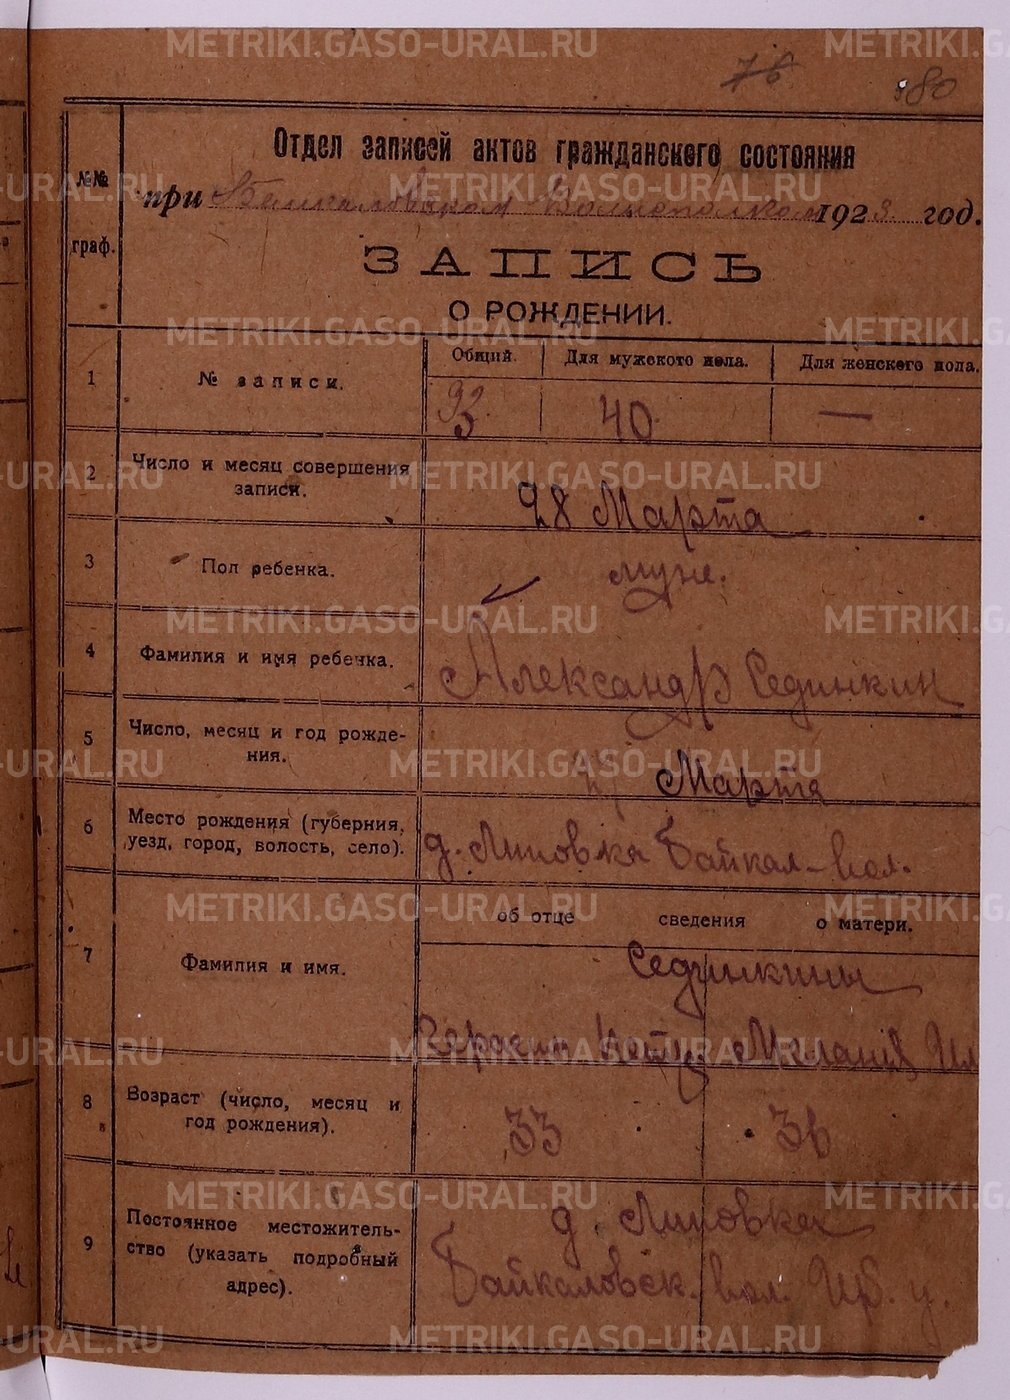 METRIKI.GASO-URAL.RU
76 80
Отдел записей актов гражданского состояния
№№ граф.
при Байкаловском Волисполкоме 1923 год.
ЗАПИСЬ
О РОЖДЕНИИ.
Общий. Для мужского пола. Для женского пола.
1 № записи. 93. 40. —
2 Число и месяц совершения
записи.
28 Марта
3 Пол ребенка. муж.
4 Фамилия и имя ребенка.
Александр Сединкин
5 Число, месяц и год рожде-
ния.
Марта
6 Место рождения (губерния,
уезд, город, волость, село).
д. Липовка Байкал-вол.
об отце сведения о матери.
7 Фамилия и имя.
Сединкины
Герасим Петр. Мелания Ил
8 Возраст (число, месяц и
год рождения).
33 36
9 Постоянное местожитель-
ство (указать подробный
адрес).
д. Липовка
Байкаловск. вол. Ирб. у.